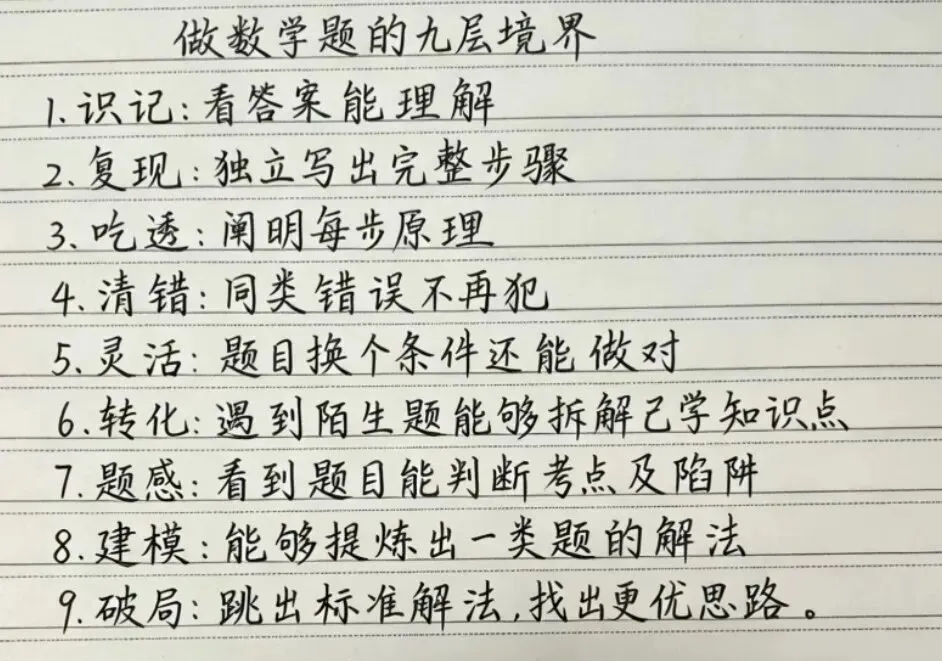 做数学题的九层境界
1.识记:看答案能理解
2.复现:独立写出完整步骤
3.吃透:阐明每步原理
4.清错:同类错误不再犯
5.灵活:题目换个条件还能做对
6.转化:遇到陌生题能够拆解己学知识点
7.题感:看到题目能判断考点及陷阱
8.建模:能够提炼出一类题的解法
9.破局:跳出标准解法,找出更优思路。